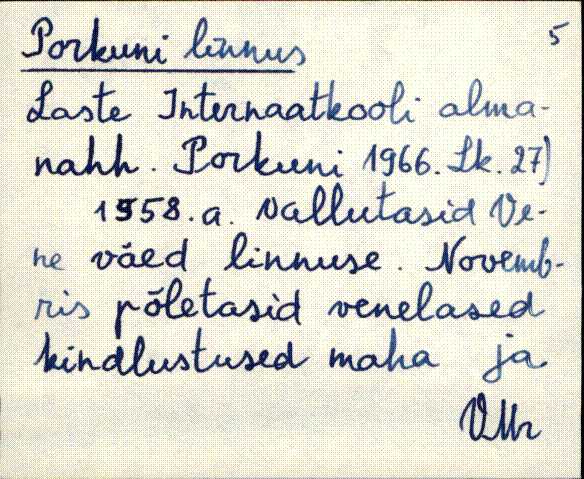 Porkuni linnus 5
Laste Internaatkooli alma-
nahh. Porkuni 1966. Lk. 27)
1958. a. vallutasid Ve-
ne väed linnuse. Novemb-
ris põletasid venelased
kindlustused maha ja